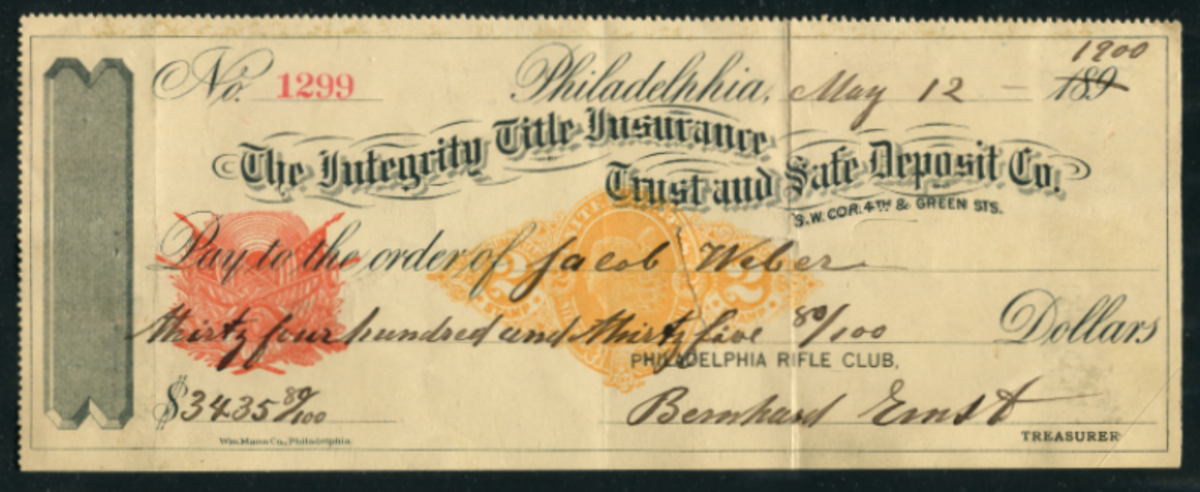 No. 1299 Philadelphia, May 12 – 189 1900
The Integrity Title Insurance
Trust and Safe Deposit Co.
S.W. COR. 4TH & GREEN STS.
Pay to the order of Jacob Weber
thirty four hundred and thirty five 80/100 Dollars
PHILADELPHIA RIFLE CLUB,
$3435 80/100 Bernhard Ernst
Wm. Mann Co., Philadelphia TREASURER
UNITED STATES
2 2
STAMP